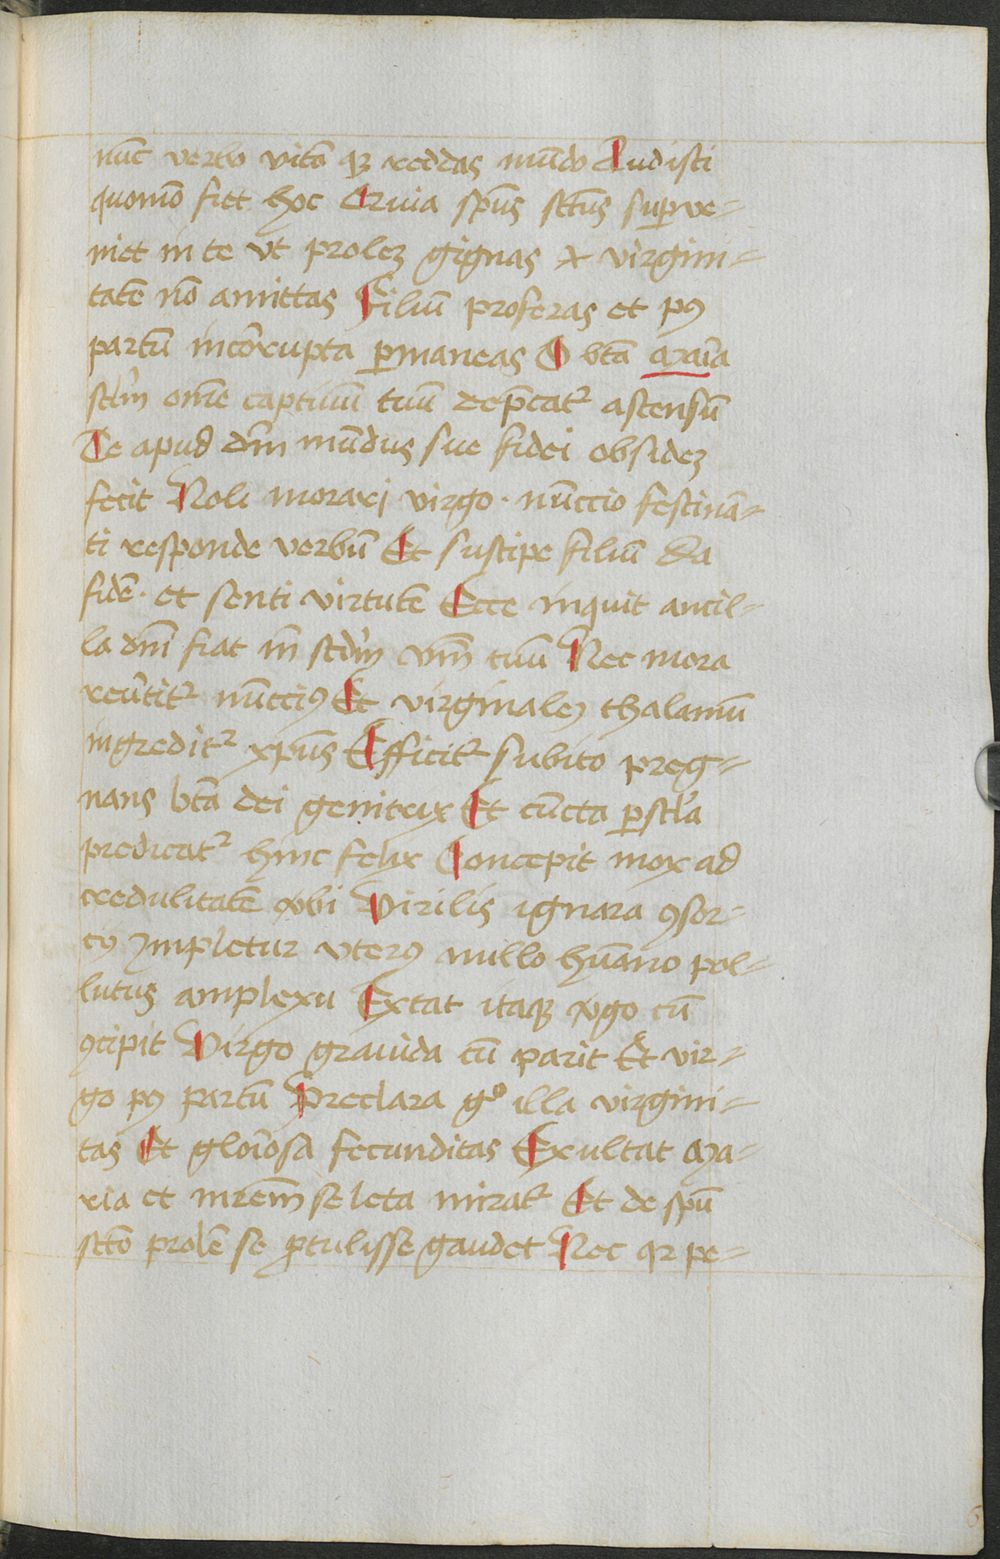 nūc verbo vitā qȝ reddas mūdo Audisti
quomō fiet hoc Quia spūs sctūs supve-
niet in te vt prolez gignas & virgini-
tatē nō amittas Filiū proferas et pꝰ
partū incōrupta pmaneas O btā maīa
sclm̄ om̄e captiuū tuū dep̄catᷣ assensū
Te apud dn̄m mūdus sue fidei obsidez
fecit Noli morari virgo · nūccio festinā-
ti responde verbū Et suscipe filiū Da
fidē · et senti virtutē Ecce inquit ancil-
la dn̄i fiat m̄ scdm̄ vm̄ tuū Nec mora
reūtitᷣ nūcciꝰ Et virginalez thalamū
ingreditᷣ xpūs Efficitᷣ subito preg-
nans btā dei genitrix Et cūcta p scl̄a
predicatᷣ hinc felix Concepit mox ad
credulitatē vbi Virilis ignara ꝯsor-
cij Impletur vterꝰ nullo hūano pol-
lutus amplexu Extat itaqȝ v̓go cū
ꝯcipit Virgo grauida cū parit Et vir-
go pꝰ partū Preclara gͦ illa virgini-
tas Et glōiosa fecunditas Exultat Ma-
ria et mrēm se leta miratᷣ Et de spū
sctō prolē se ꝓtulisse gaudet Nec qꝛ pe-